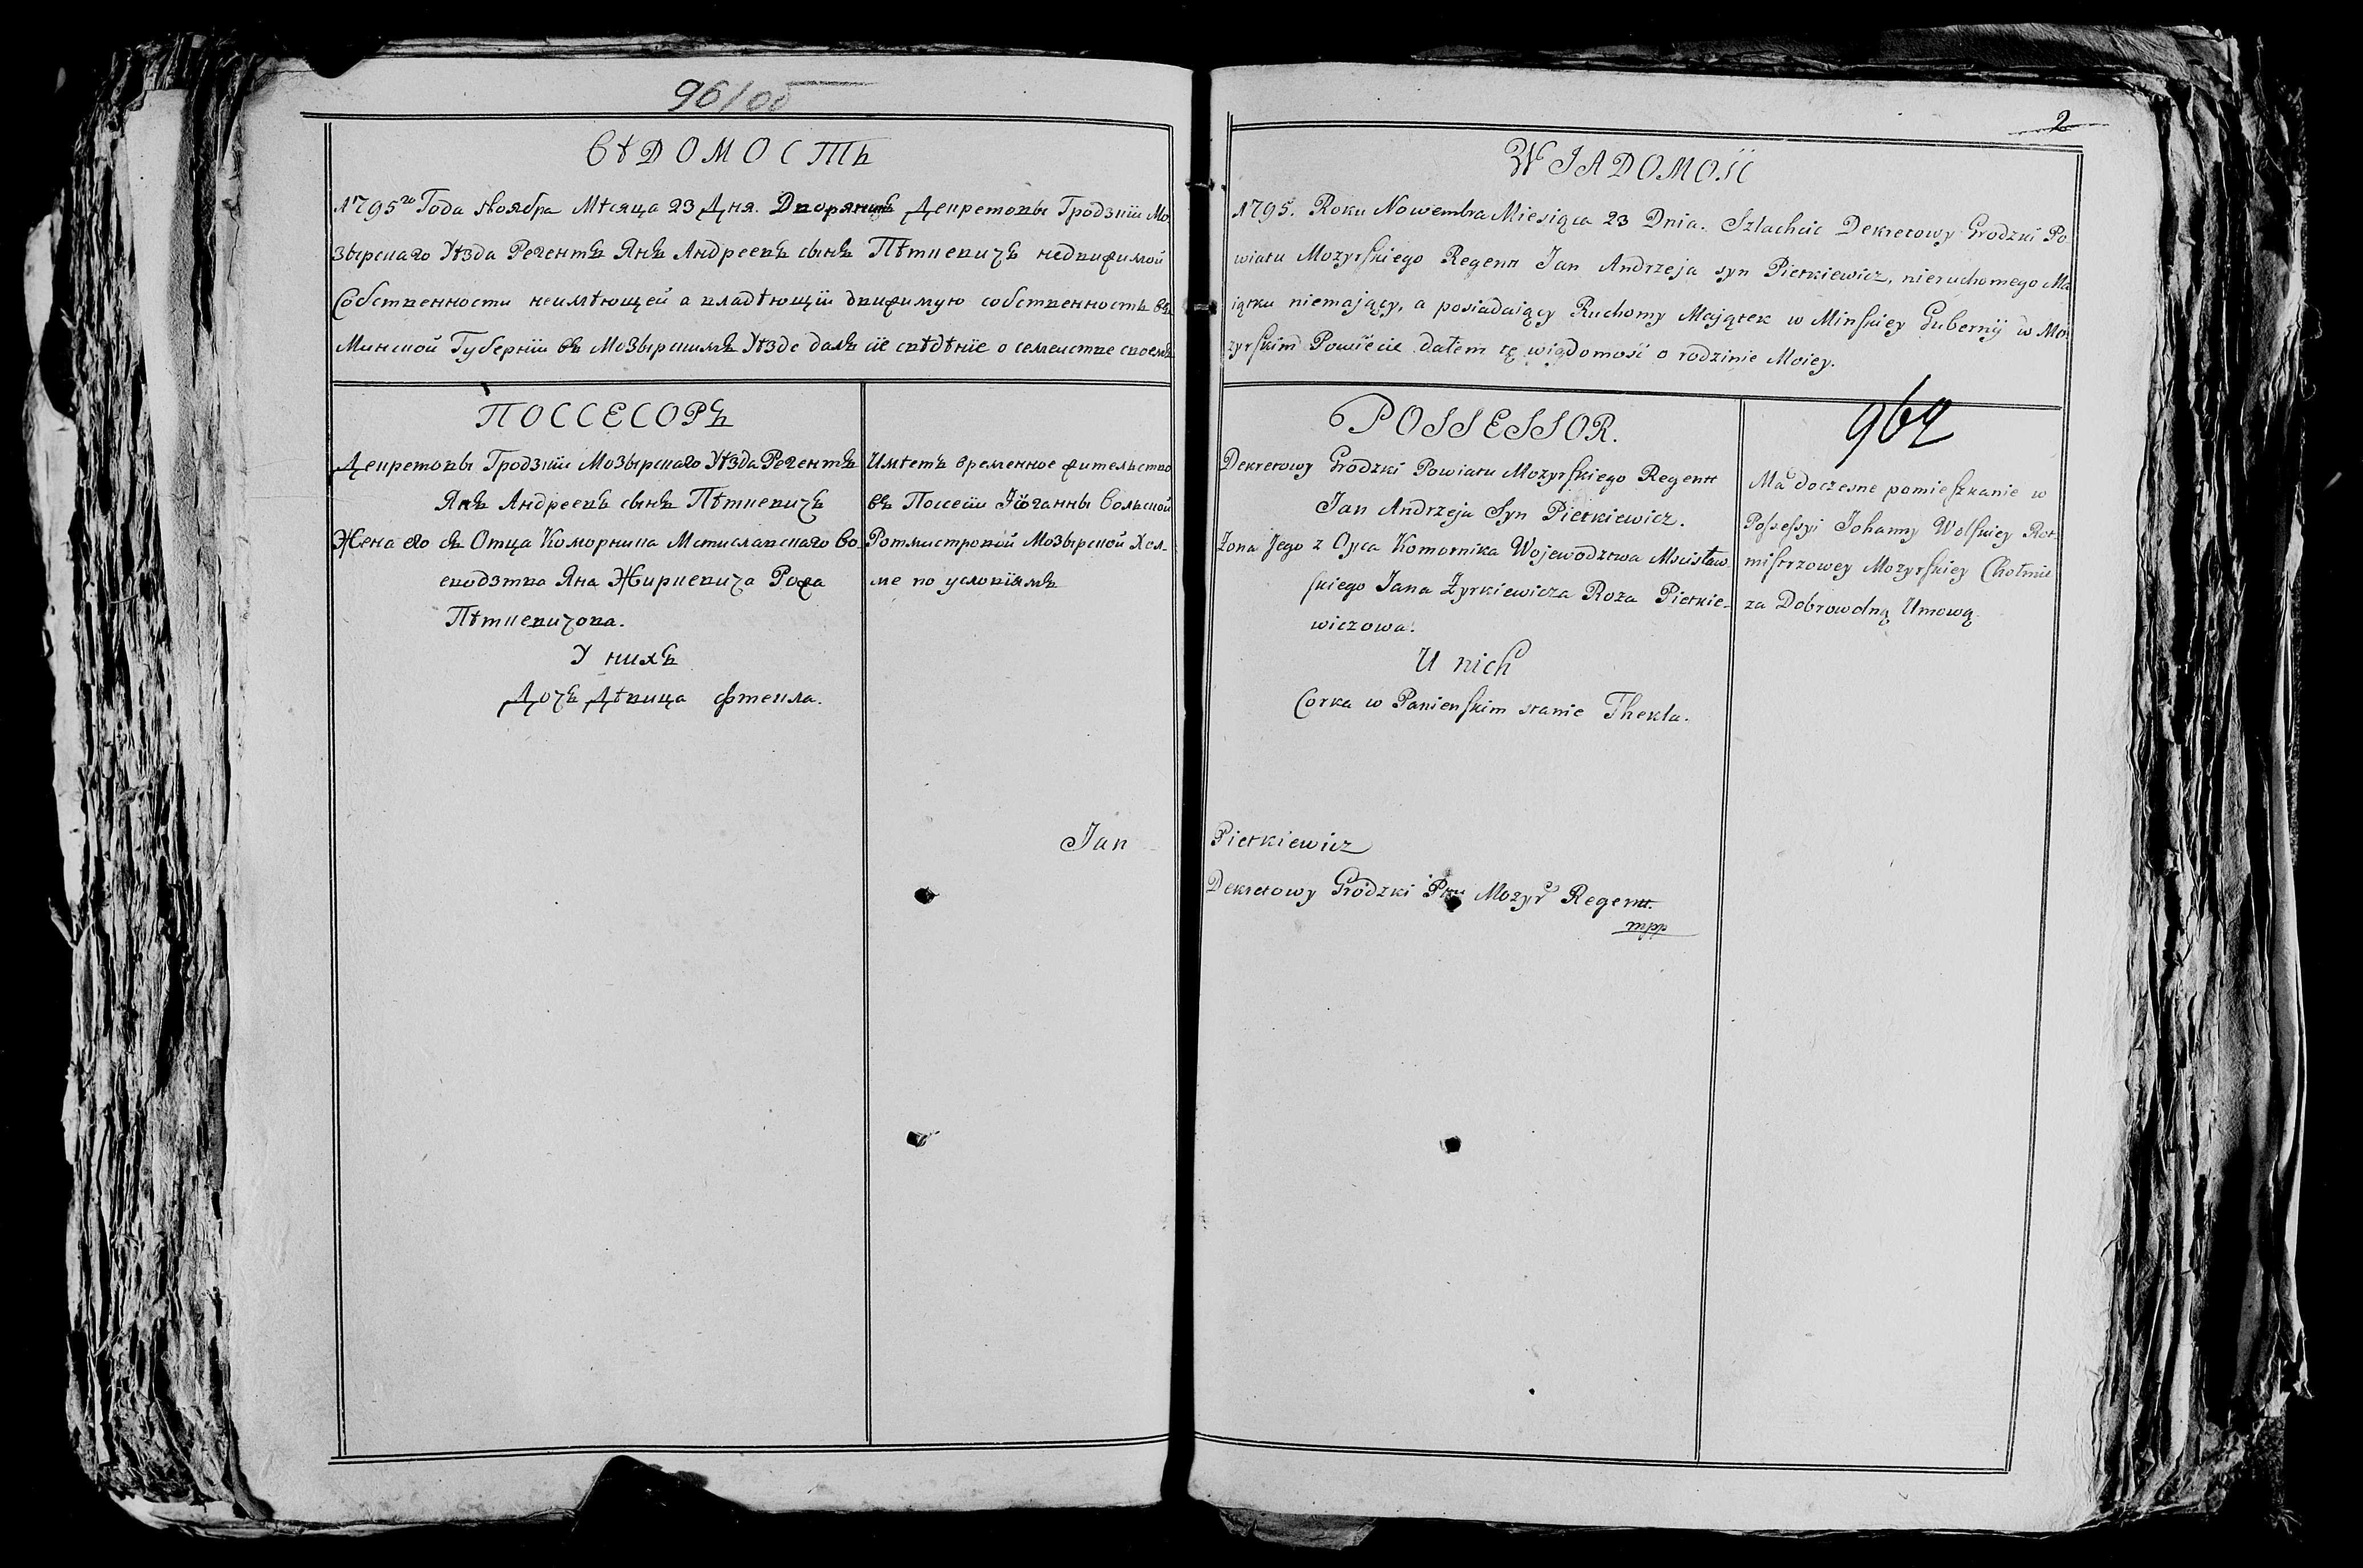 96/об
ВѢДОМОСТЬ
1795го Года Ноября Мѣсяца 23 Дня. Дворянинъ Декретовы Гродзкiи Мо
зырскаго Уѣзда Регентъ Янъ Андреевъ сынъ Пѣткевичъ недвижимой
Собственности неимѣющей а владѣющiи движимую собственность въ
Минской Губернiи въ Мозырскимъ Уѣзде далъ сiе свѣдѣнiе о семействе своемъ
ПОССЕСОРЪ
Декретовы Гродзкiи Мозырскаго Уѣзда Регентъ
Янъ Андреевъ сынъ Пѣткевичъ
Жена его съ Отца Коморника Мстиславскаго Во-
еводзтва Яна Жиркевича Рожа
Пѣткевичова.
У нихъ
Дочъ Дѣвица Фтекла.
Имѣетъ временное жительство
въ Поссесiи Iоганны Вольской
Ротмистровой Мозырской Хол-
ме по условiямъ
Jan
2
WIADOMOŚĆ
1795. Roku Nowembra Miesiąca 23 Dnia. Szlachcic Dekretowy Grodzki Po
wiatu Mozyrskiego Regent Jan Andrzeja syn Pietkiewicz, nieruchomego Ma
iątku niemający, a posiadaiący Ruchomy Majątek w Minskiey Gubernij w Mo
zyrskim Powiecie dałem tę wiadomość o rodzinie Moiey.
POSSESSOR.
Dekretowy Grodzki Powiatu Mozyrskiego Regent
Jan Andrzeja Syn Pietkiewicz.
Zona Jego z Oyca Komornika Wojewodztwa Mscisław
skiego Jana Żyrkiewicza Roża Pietkie-
wiczowa.
U nich
Corka w Panienskim stanie Thekla.
962
Ma doczesne pomieszkanie w
Possessyi Johanny Wolskiey Rot-
mistrzowey Mozyrskiey Chołmie
za Dobrowolną Umową
Pietkiewicz
Dekretowy Grodzki Pttu Mozyr Regent.
mpp